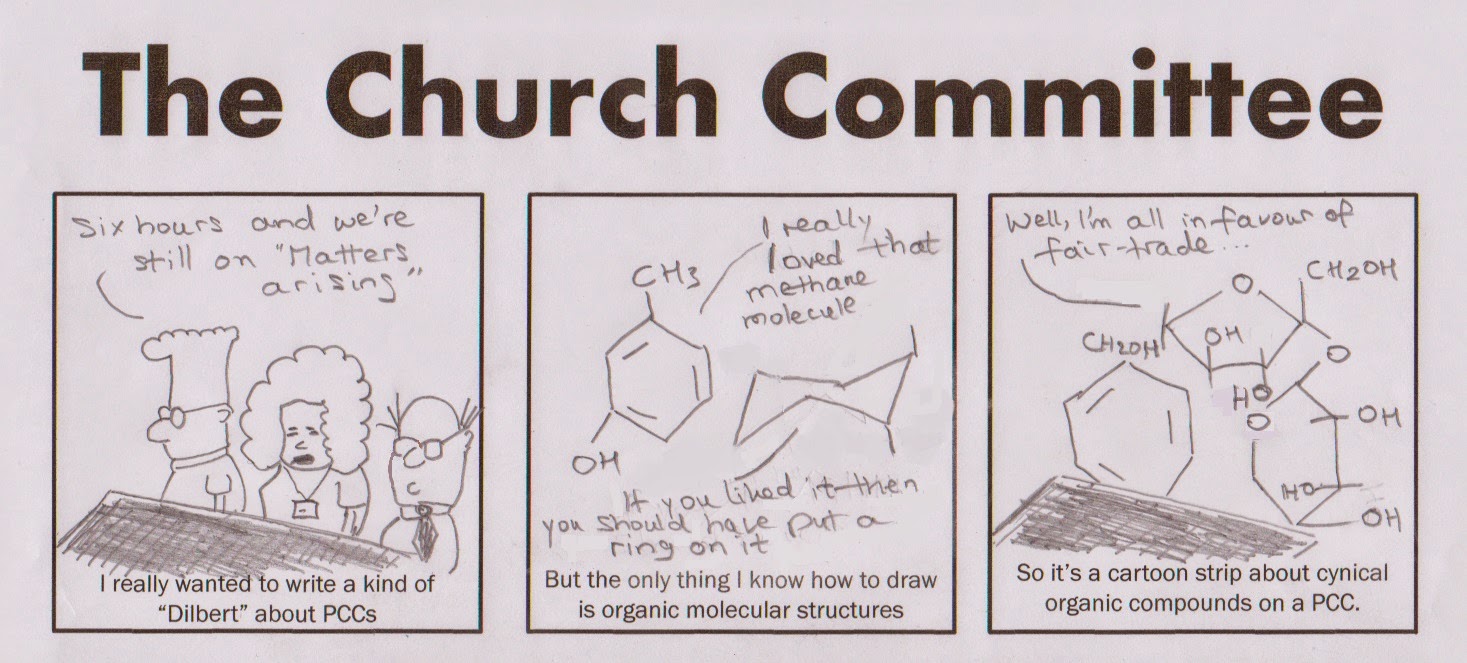 The Church Committee
Six hours and we're
still on "Matters
arising"
I really wanted to write a kind of
“Dilbert” about PCCs
I really
loved that
methane
molecule
CH3
OH
If you liked it then
you should have put a
ring on it
But the only thing I know how to draw
is organic molecular structures
Well, I'm all in favour of
fair-trade...
O
CH2OH
CH2OH
OH
O
HO
O
OH
HO
OH
So it’s a cartoon strip about cynical
organic compounds on a PCC.